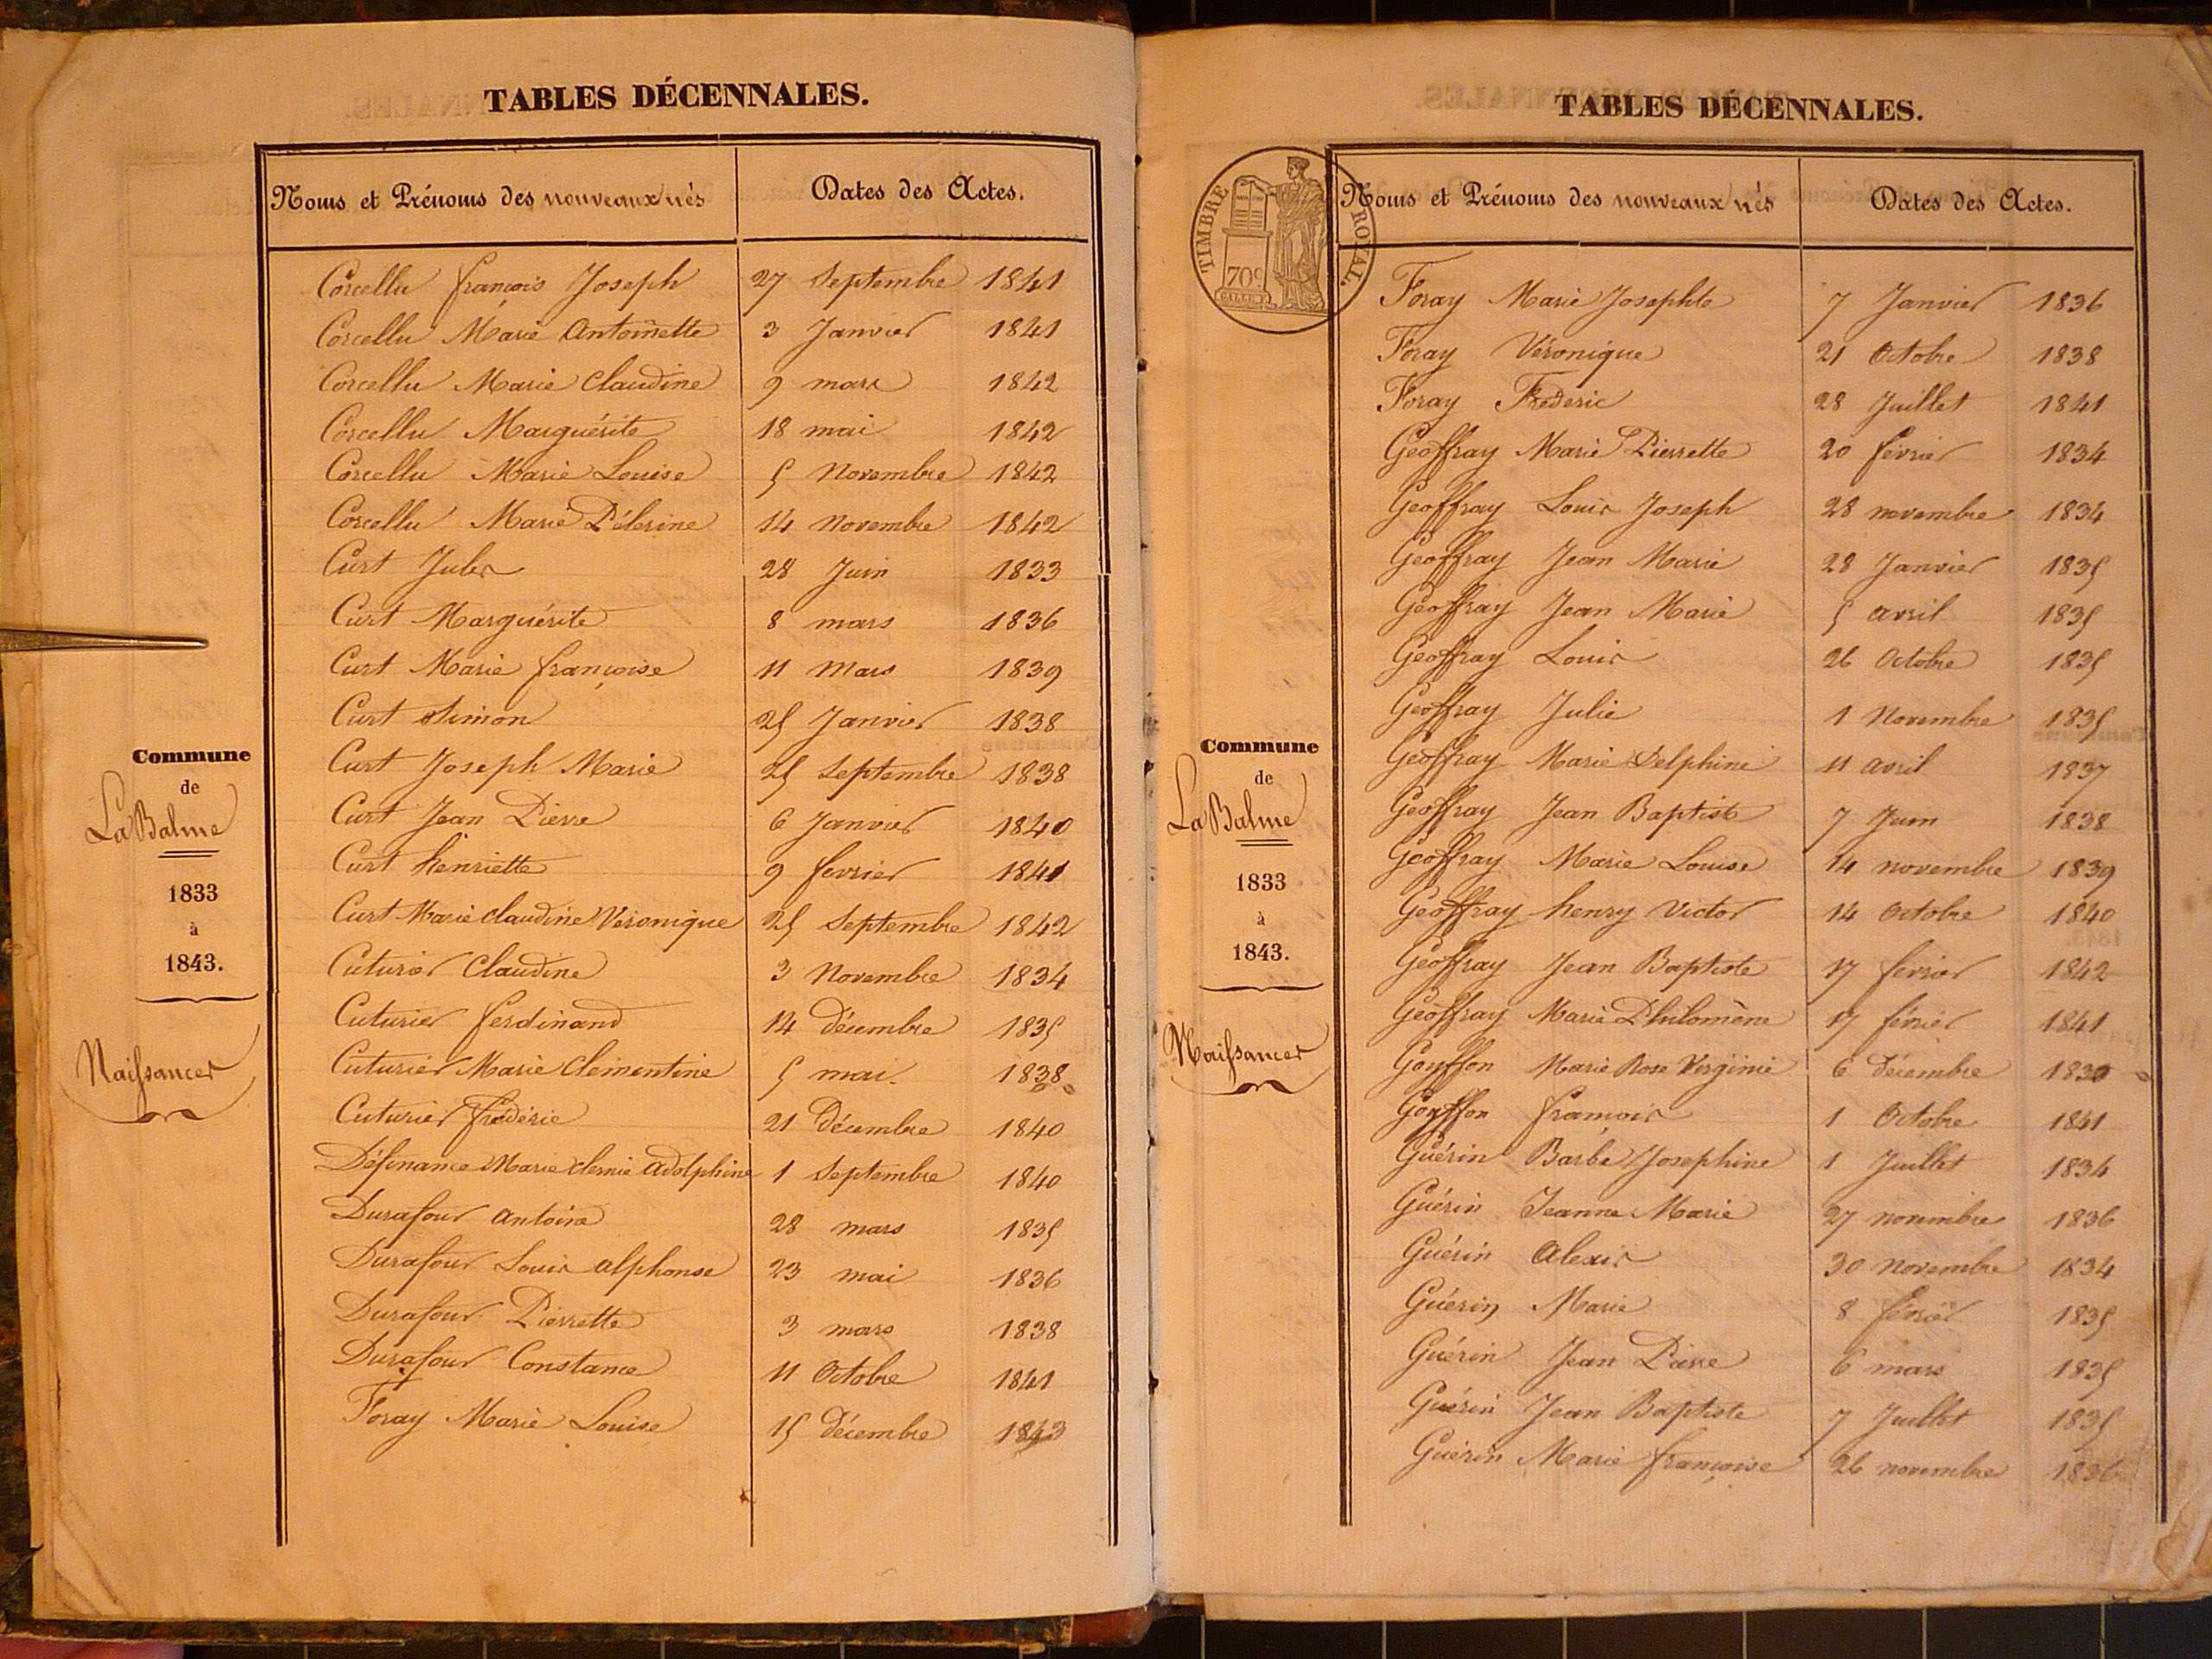 TABLES DÉCENNALES.
Noms et Prénoms des nouveaux nés Dates des Actes.
Corcellu françois Joseph 27 Septembre 1841
Corcellu Marie Antoinette 3 Janvier 1841
Corcellu Marie Claudine 9 mars 1842
Corcellu Marguérite 18 mai 1842
Corcellu Marie Louise 5 Novembre 1842
Corcellu Marie Pélerine 14 Novembre 1842
Curt Jules 28 Juin 1833
Curt Marguérite 8 mars 1836
Curt Marie françoise 11 Mars 1839
Curt Simon 25 Janvier 1838
Curt Joseph Marie 25 Septembre 1838
Curt Jean Pierre 6 Janvier 1840
Curt henriette 9 fevrier 1841
Curt Marie Claudine Véronique 25 Septembre 1842
Cuturier Claudine 3 Novembre 1834
Cuturier ferdinand 14 décembre 1835
Cuturier Marie Clémentine 5 mai 1838
Cuturier frédéric 21 Décembre 1840
Définance Marie Adolphine 1 Septembre 1840
Durafour Antoine 28 mars 1835
Durafour Louis alphonse 23 mai 1836
Durafour Pierrette 3 mars 1838
Durafour Constance 11 Octobre 1841
Foray Marie Louise 15 Décembre 1843
Commune
de
La Balme
1833
à
1843.
Naissances
TABLES DÉCENNALES.
TIMBRE ROYAL.
70c
Noms et Prénoms des nouveaux nés Dates des Actes.
Foray Marie Josephte 7 Janvier 1836
Foray Véronique 21 Octobre 1838
Foray Fréderic 28 Juillet 1841
Geoffray Marie Pierrette 20 février 1834
Geoffray Louis Joseph 28 novembre 1834
Geoffray Jean Marie 28 Janvier 1835
Geoffray Jean Marie 5 avril 1835
Geoffray Louis 26 Octobre 1835
Geoffray Julie 1 Novembre 1835
Geoffray Marie Delphine 11 avril 1837
Geoffray Jean Baptiste 7 Juin 1838
Geoffray Marie Louise 14 novembre 1839
Geoffray henry Victor 14 Octobre 1840
Geoffray Jean Baptiste 17 fevrier 1842
Geoffray Marie Philomène 17 février 1841
Goyffon Marie Rose Virginie 6 décembre
Goyffon françois 1 Octobre 1841
Guérin Barbe Josephine 1 Juillet 1834
Guérin Jeanne Marie 27 novembre 1836
Guérin Alexis 30 Novembre 1834
Guérin Marie 8 février 1835
Guérin Jean Pierre 6 mars 1835
Guérin Jean Baptiste 7 Juillet 1835
Guérin Marie françoise 26 novembre 1836
Commune
de
La Balme
1833
à
1843.
Naissances